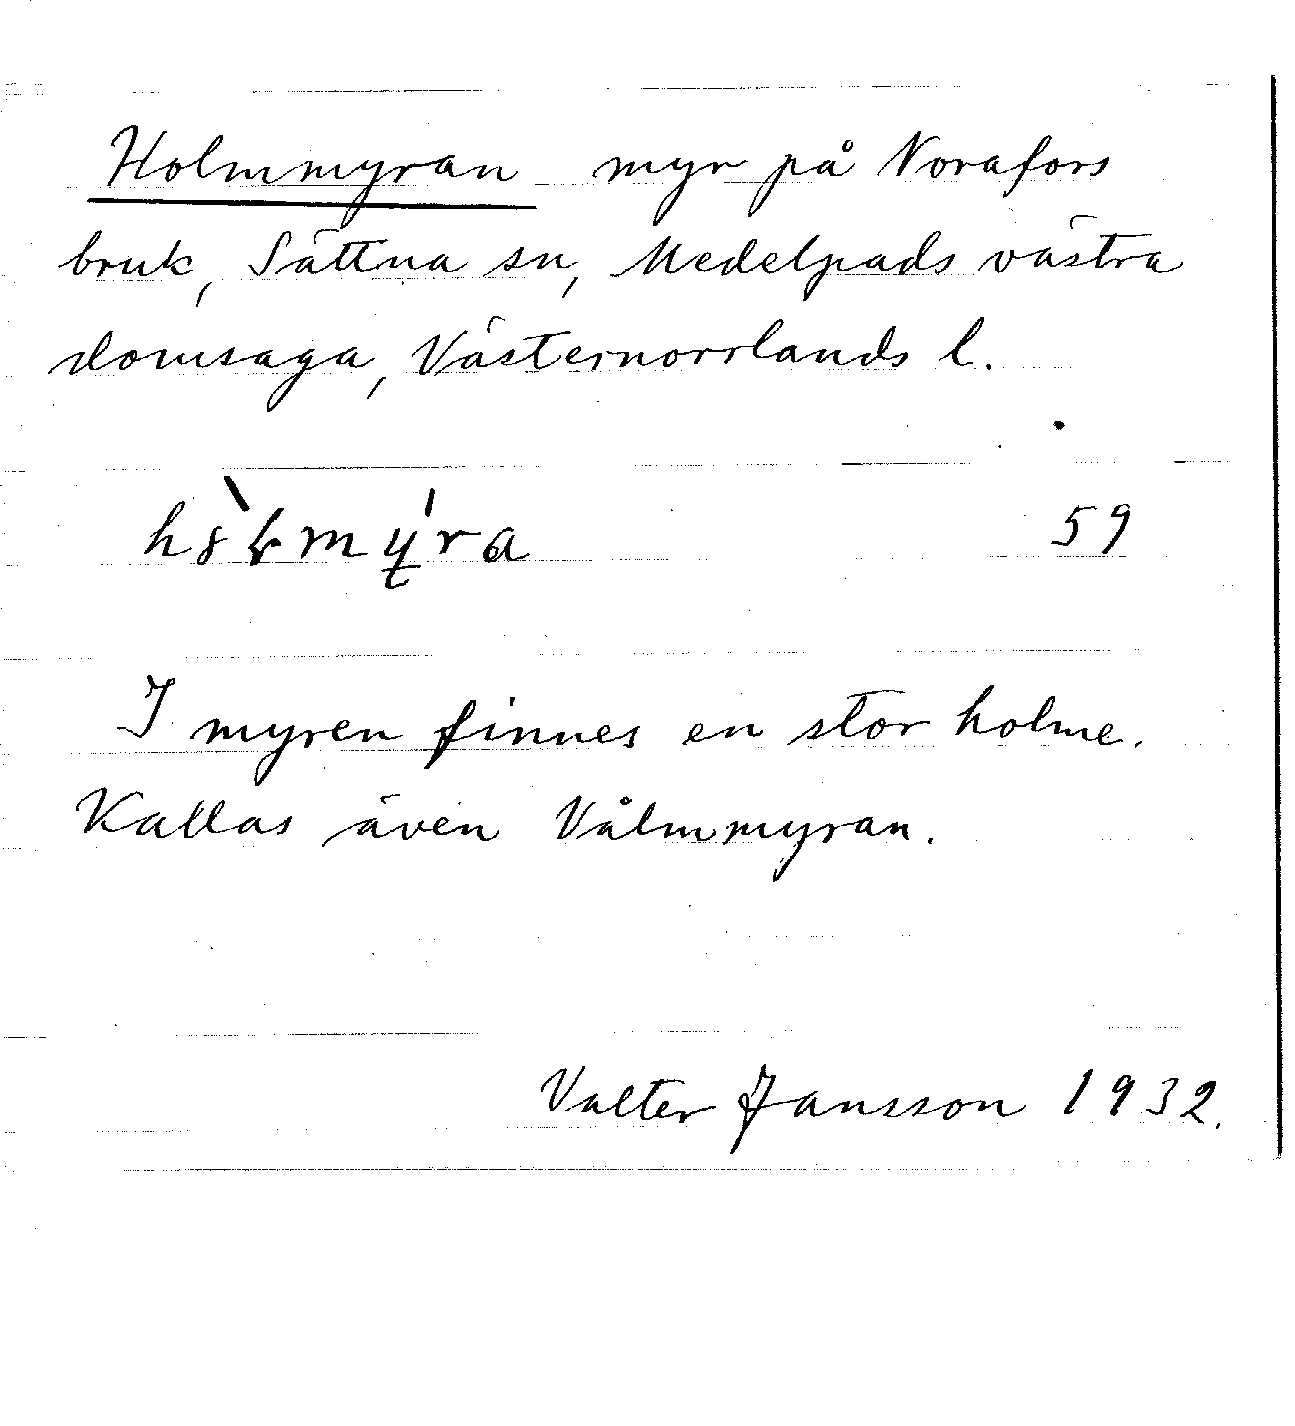 Holmmyran myr på Norafors
bruk, Sättna sn, Medelpads västra
domsaga, Västernorrlands l.
59
I myren finnes en stor holme.
Kallas även Vålmmyran.
Valter Jansson 1932.